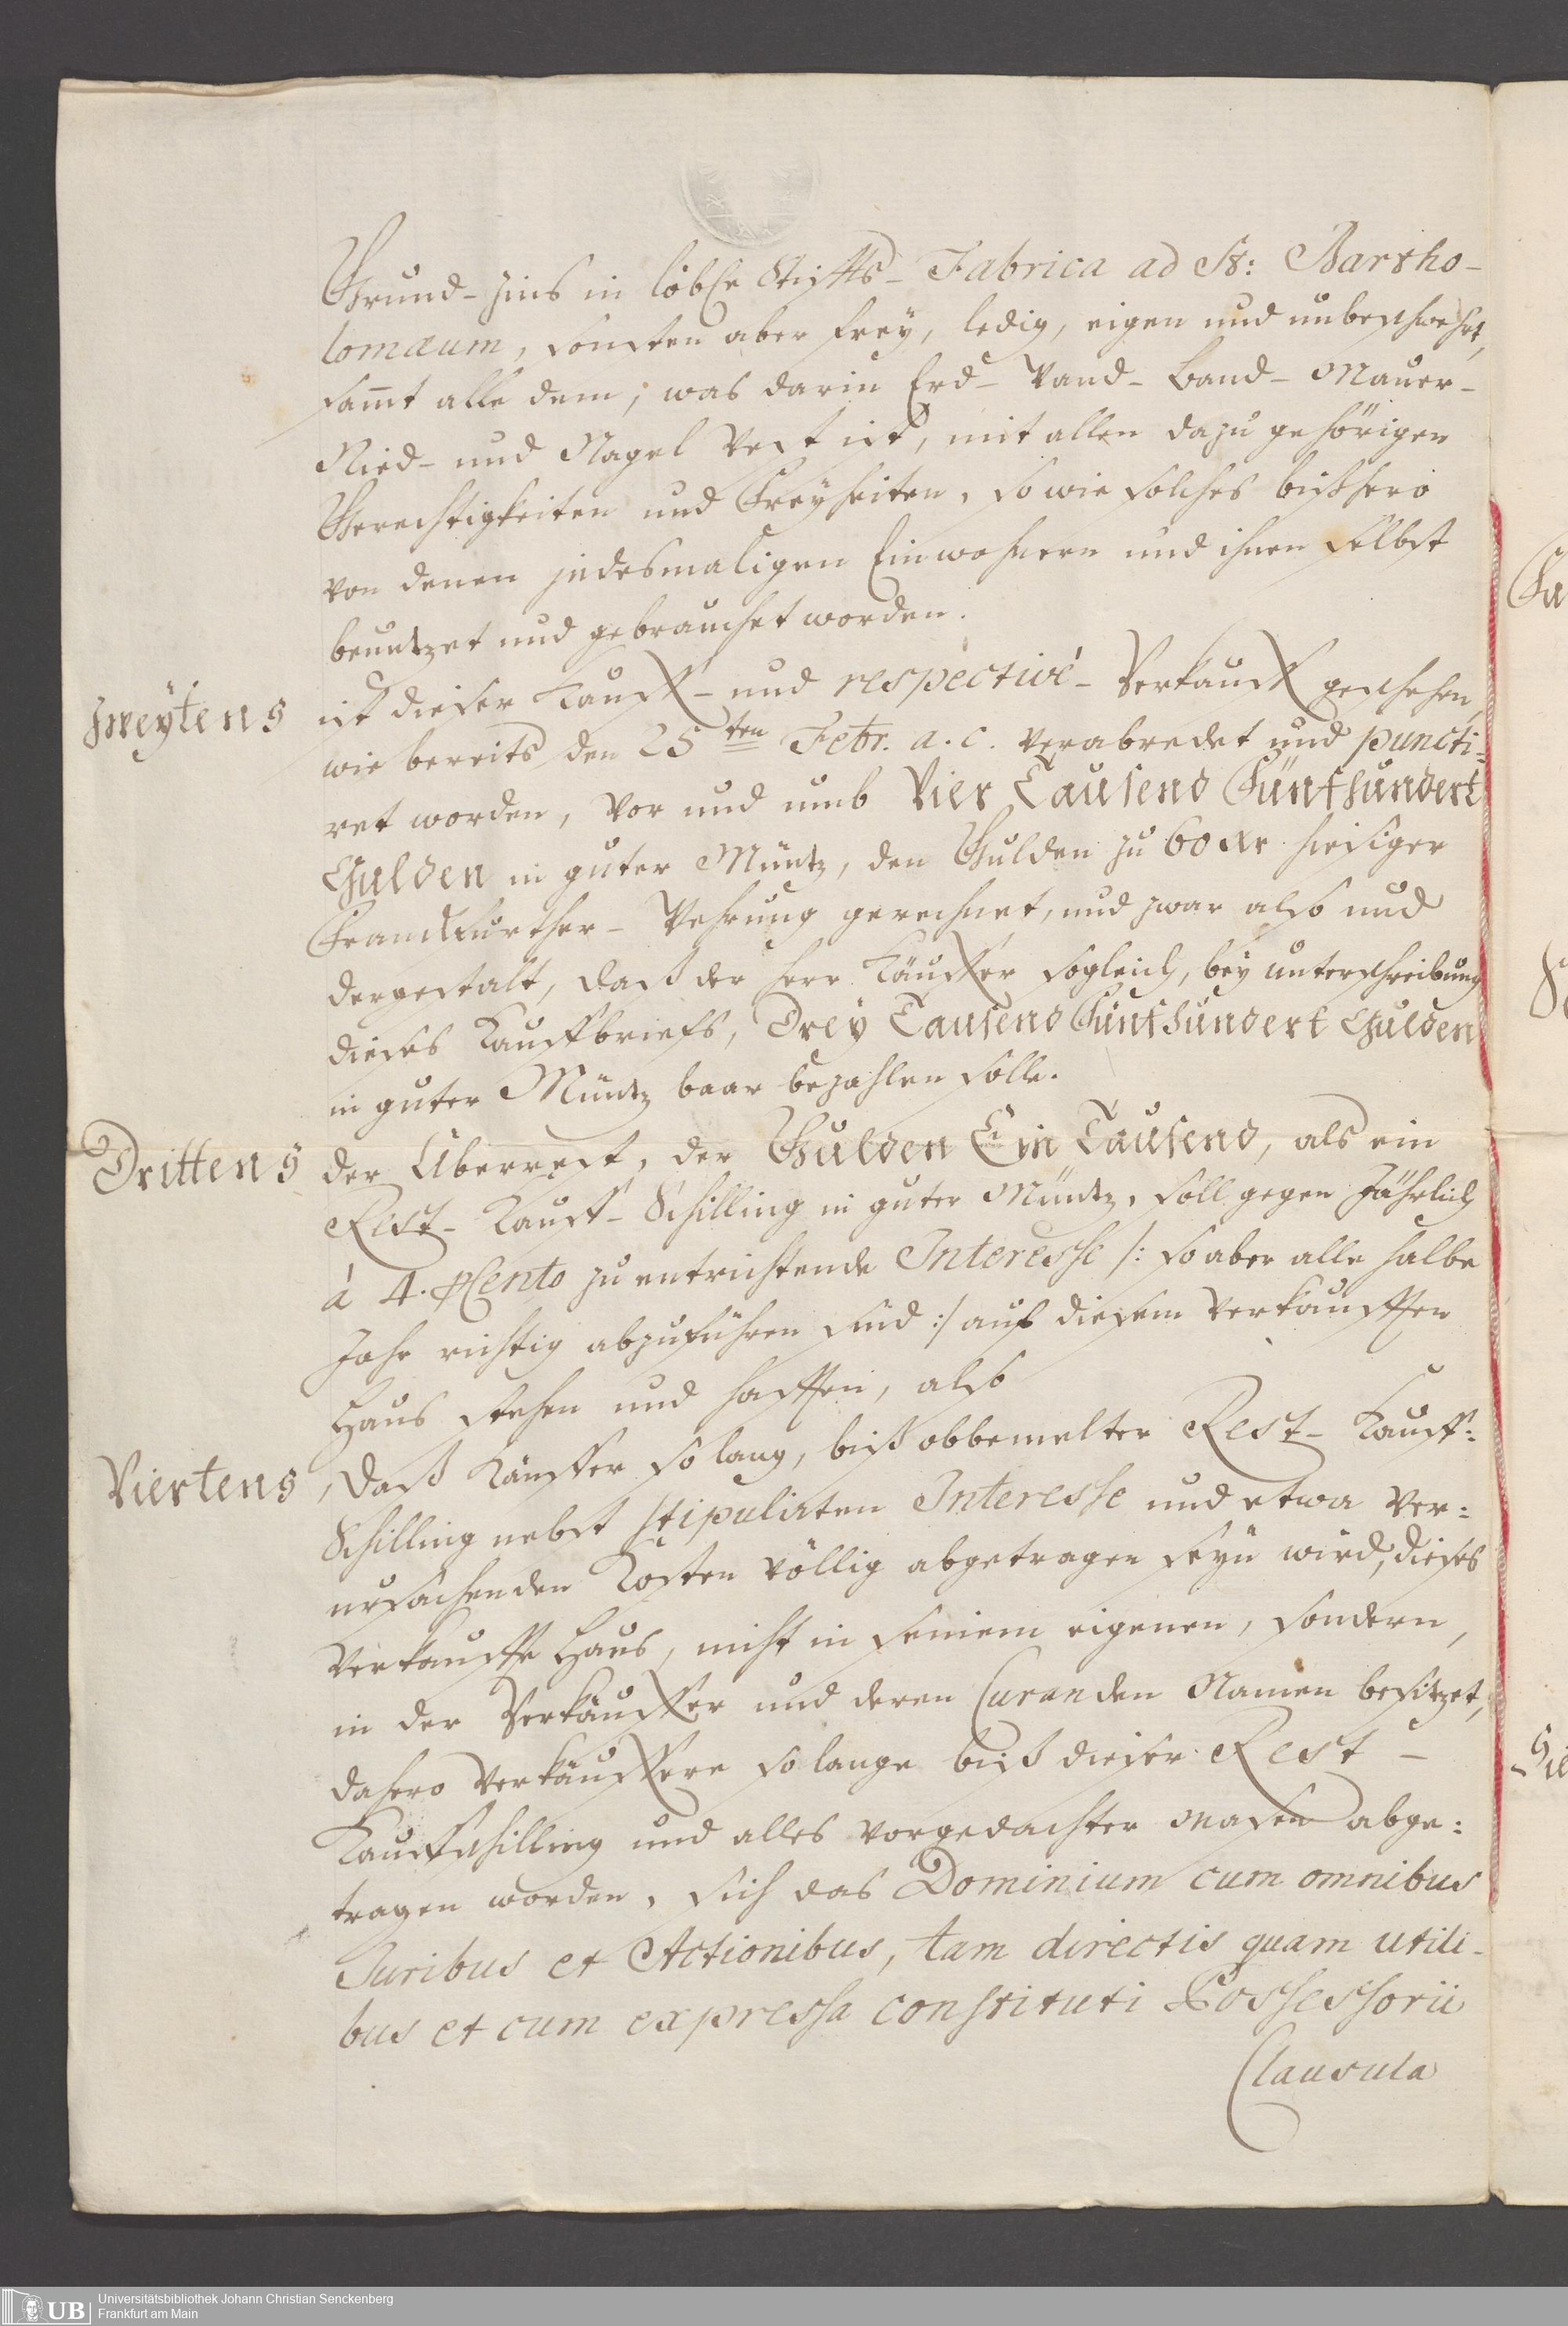 Grund-Zins in löbl. Stiffts- Fabrica ad St: Bartho-
lomæum, sonsten aber frey, ledig, eigen und unbeschwehrt,
sam̄t alle dem, was darin Erd- Wand- Band- Mauer-
Nied- und Nagel Vest ist, mit allen dazu gehörigen
Gerechtigkeiten und Freyheiten, so wie solches bißhero
von denen jedesmaligen Einwohnern und ihnen selbst
benutzet und gebrauchet worden.
Zweytens ist dieser Kauff- und respectivé- Verkauff geschehen,
wie bereits den 25ten Febr. a. c. verabredet und puncti-
ret worden, vor und umb Vier Tausend Fünfhundert
Gulden in guter Müntz, den Gulden zu 60 xr hiesiger
Franckfurther- Wehrung gerechnet, und zwar also und
dergestalt, daß der Herr Käuffer sogleich, bey unterschreibung
dieses Kauffbriefs, Drey Tausend Fünfhundert Gulden
in guter Müntz baar bezahlen solle.
Drittens der Überrest, der Gulden Ein Tausend, als ein
Rest- Kauff- Schilling in guter Müntz, soll gegen Jährlich
á 4. pCento zu entrichtende Interesse /: so aber alle halbe
Jahr richtig abzuführen sind :/ auf diesem Verkaufften
Haus stehen und hafften, also
Viertens, daß Käuffer so lang, biß obbemelter Rest- Kauff-
Schilling nebst stipulirten Interesse und etwa ver-
ursachenden Kosten völlig abgetragen seyn wird, dieses
Verkauffte Haus, nicht in seinem eigenen, sondern,
in der Verkäuffer und deren Curanden Namen besitzet,
dahero Verkäuffere so lange biß dieser Rest-
Kauffschilling und alles vorgedachter Masen abge-
tragen worden, sich das Dominium cum omnibus
Juribus et Actionibus, tam directis quam utili-
bus et cum expressa constituti Possessorii
Clausula
Universitätsbibliothek Johann Christian Senckenberg
Frankfurt am Main
UB